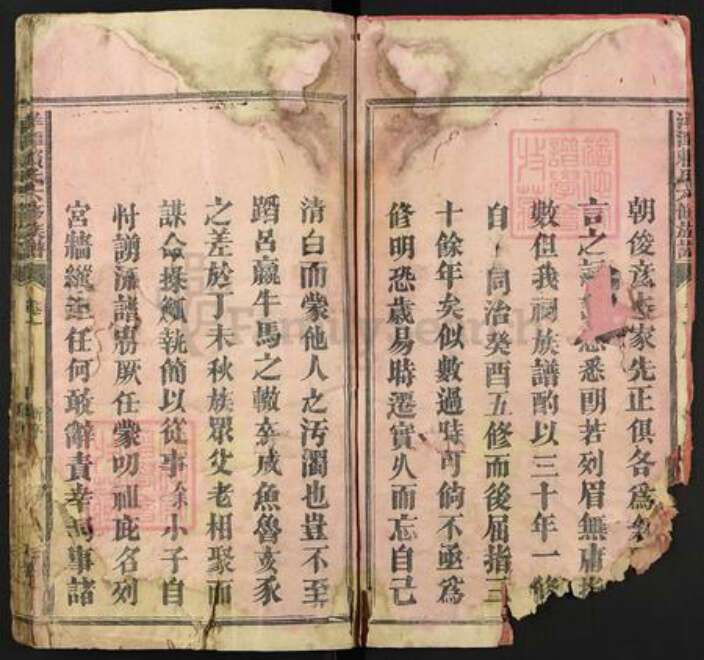 朝俊彥本家先正俱各爲
言之悉悉朙若列眉無庸
數但我祠族譜酌以三十年一修
自同治癸酉五修而後屈指三
十餘年矣似數過時可餉不亟爲
修明恐歲易時遷實久而忘自己
清白而蒙他人之汚濁也豈不至
蹈呂嬴牛馬之轍弃成魚魯亥豕
之差於丁未秋族眾父老相聚而
謀命操觚執簡以從事余小子自
忖謭流譜胬厥任蒙叨祖庇名列
宮牆纘述任何敢辭責幸馬事諸
六修族譜